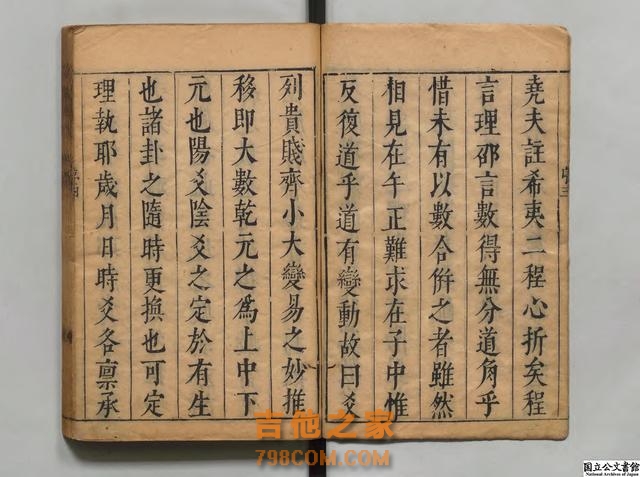 堯夫註希夷二程心折矣程
言理邵言數得無分道角乎
惜未有以數合倂之者雖然
相見在午正難求在子中惟
反復道乎道有變動故曰爻
列貴賤齊小大變易之妙推
移即大數乾元之爲上中下
元也陽爻陰爻之定於有生
也諸卦之隨時更換也可定
理執耶歲月日時爻各禀承
吉他之家
798COM.COM
国立公文書館
National Archives of Japan